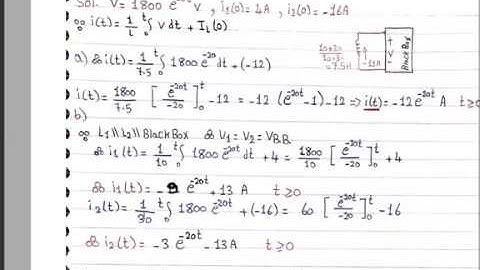 Sol. V = 1800 e V , i₁(0) = 4A , i₂(0) = -16A
∞ i(t) = 1/L ∫₀ᵗ v dt + I_L(0)
a) & i(t) = 1/7.5 ∫₀ᵗ 1800 e^-20 dt + (-12)
i(t) = 1800/7.5 [ e^-20t / -20 ]₀ᵗ - 12 = -12 (e^-20t - 1) - 12 ⇒ i(t) = -12 e^-20t A t ≥ 0
+ V - Black Box
b)
∞ L₁ // L₂ // Black Box & V₁ = V₂ = V_BB
& i₁(t) = 1/10 ∫₀ᵗ 1800 e^-20t dt + 4 = 1800/10 [ e^-20t / -20 ]₀ᵗ + 4
& i₁(t) = -9 e^-20t + 13 A t ≥ 0
i₂(t) = 1/30 ∫₀ᵗ 1800 e^-20t + (-16) = 60 [ e^-20t / -20 ]₀ᵗ - 16
& i₂(t) = -3 e^-20t - 13 A t ≥ 0